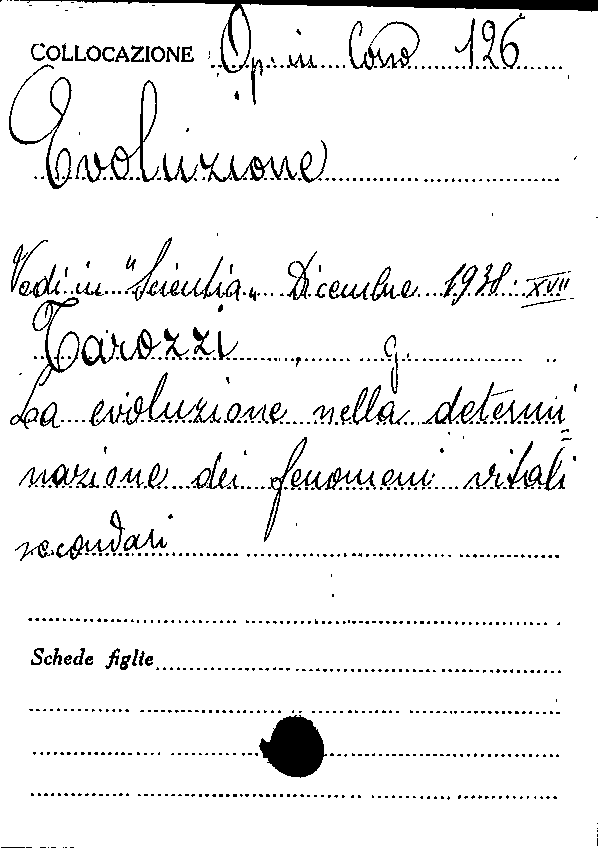 COLLOCAZIONE Op. in Corso 126
Evoluzione
Vedi in "Scientia" Dicembre 1938 XVII
Tarozzi, g.
La evoluzione nella determi=
nazione dei fenomeni vitali
secondari
Schede figlie